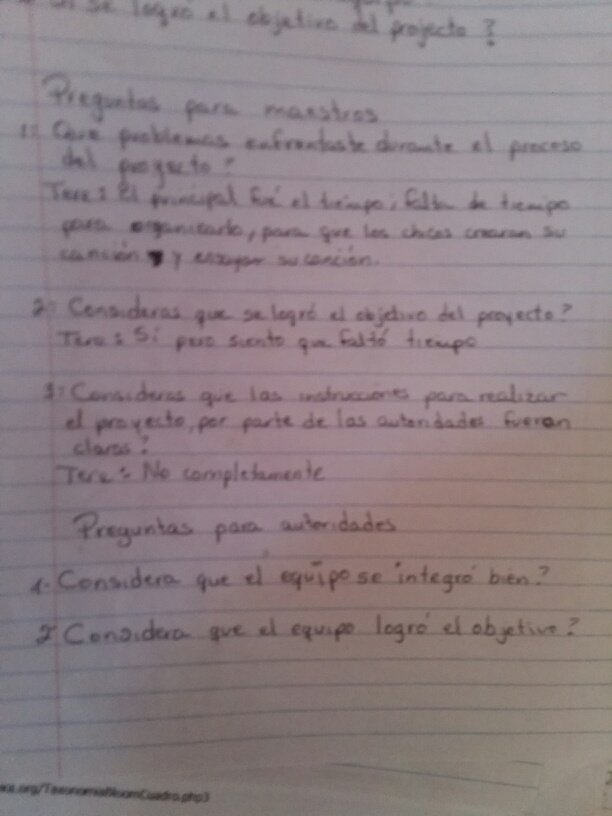 se logró el objetivo del projecto?
Preguntas para maestros
1- Que problemas enfrentaste durante el proceso
del proyecto?
Tere: El principal fué el tiempo; falta de tiempo
para organizarlo, para que los chicos crearan su
canción y su canción.
2- Consideras que se logró el objetivo del proyecto?
Tere: Si pero siento que faltó tiempo
3- Consideras que las instrucciones para realizar
el proyecto, por parte de las autoridades fueron
claras?
Tere: No completamente
Preguntas para autoridades
1- Considera que el equipo se integró bien?
2- Considera que el equipo logró el objetivo?
.org/TaxonomiaBloomCuadro.php3